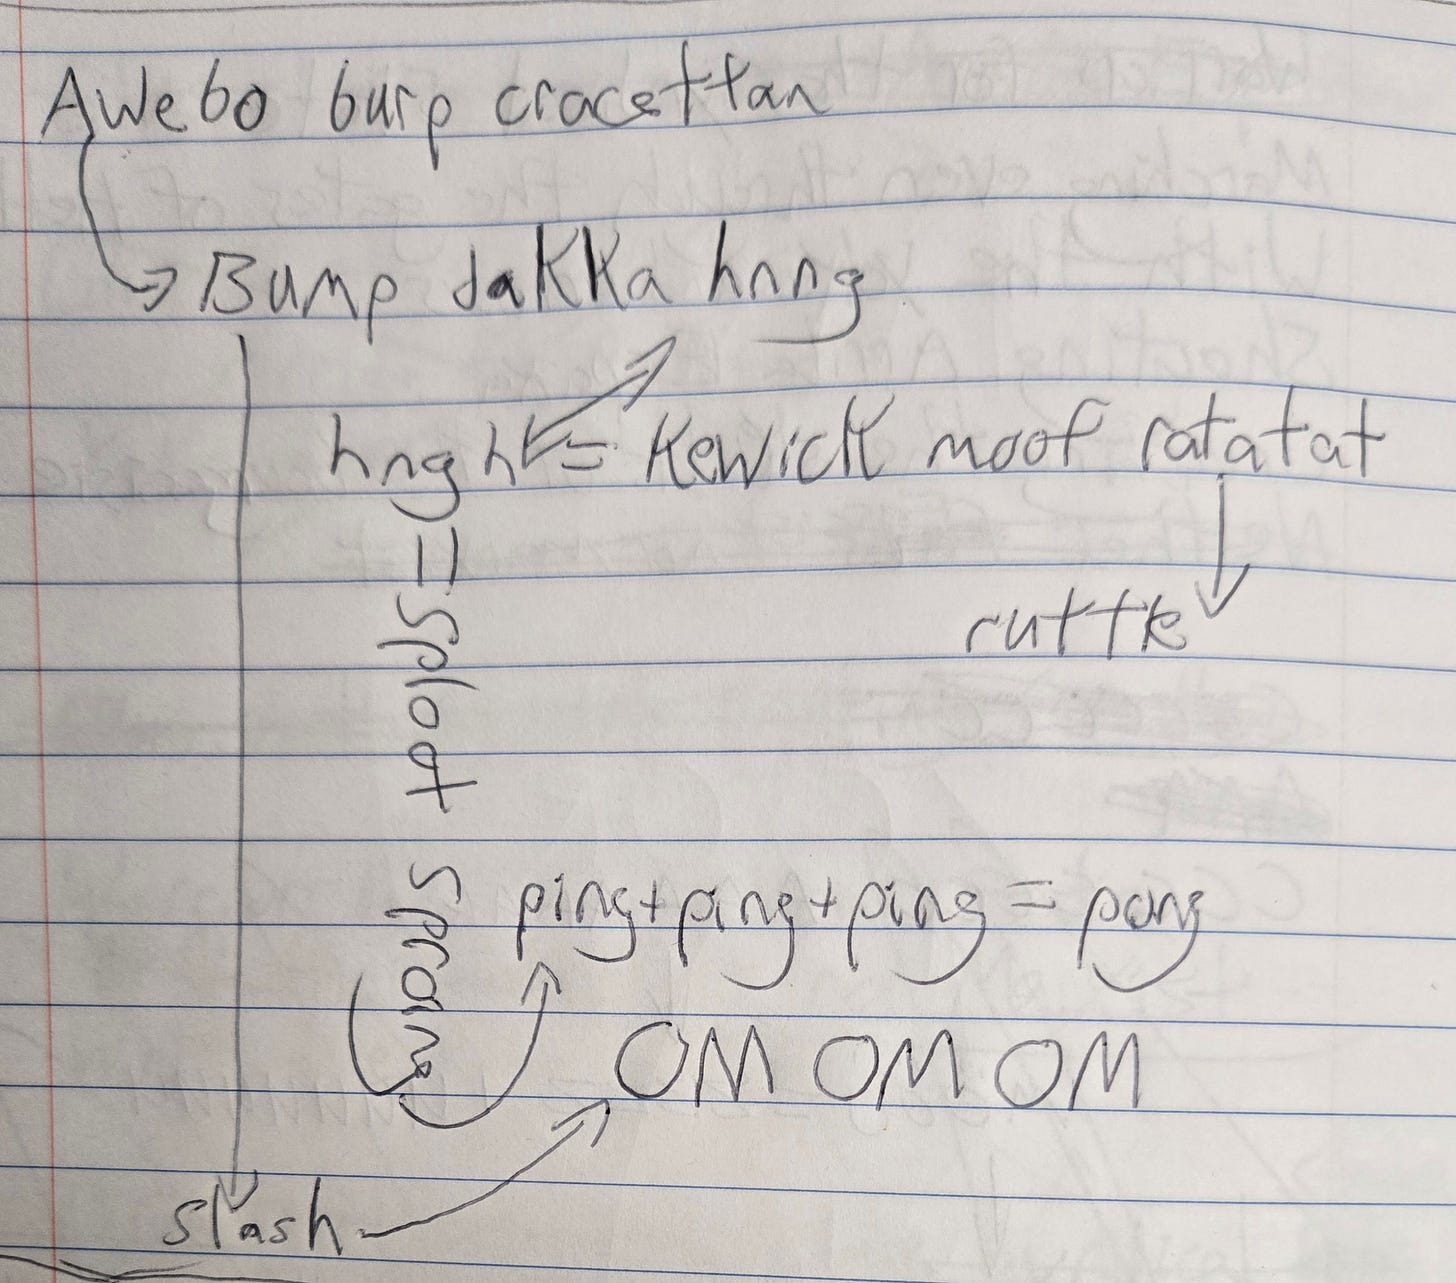 Awebo burp cracettan
Bump dakka hnng
hngh = Kewick moof ratatat
= sploot
ruttk
sproing
ping+ping+ping = pong
OM OM OM
slash